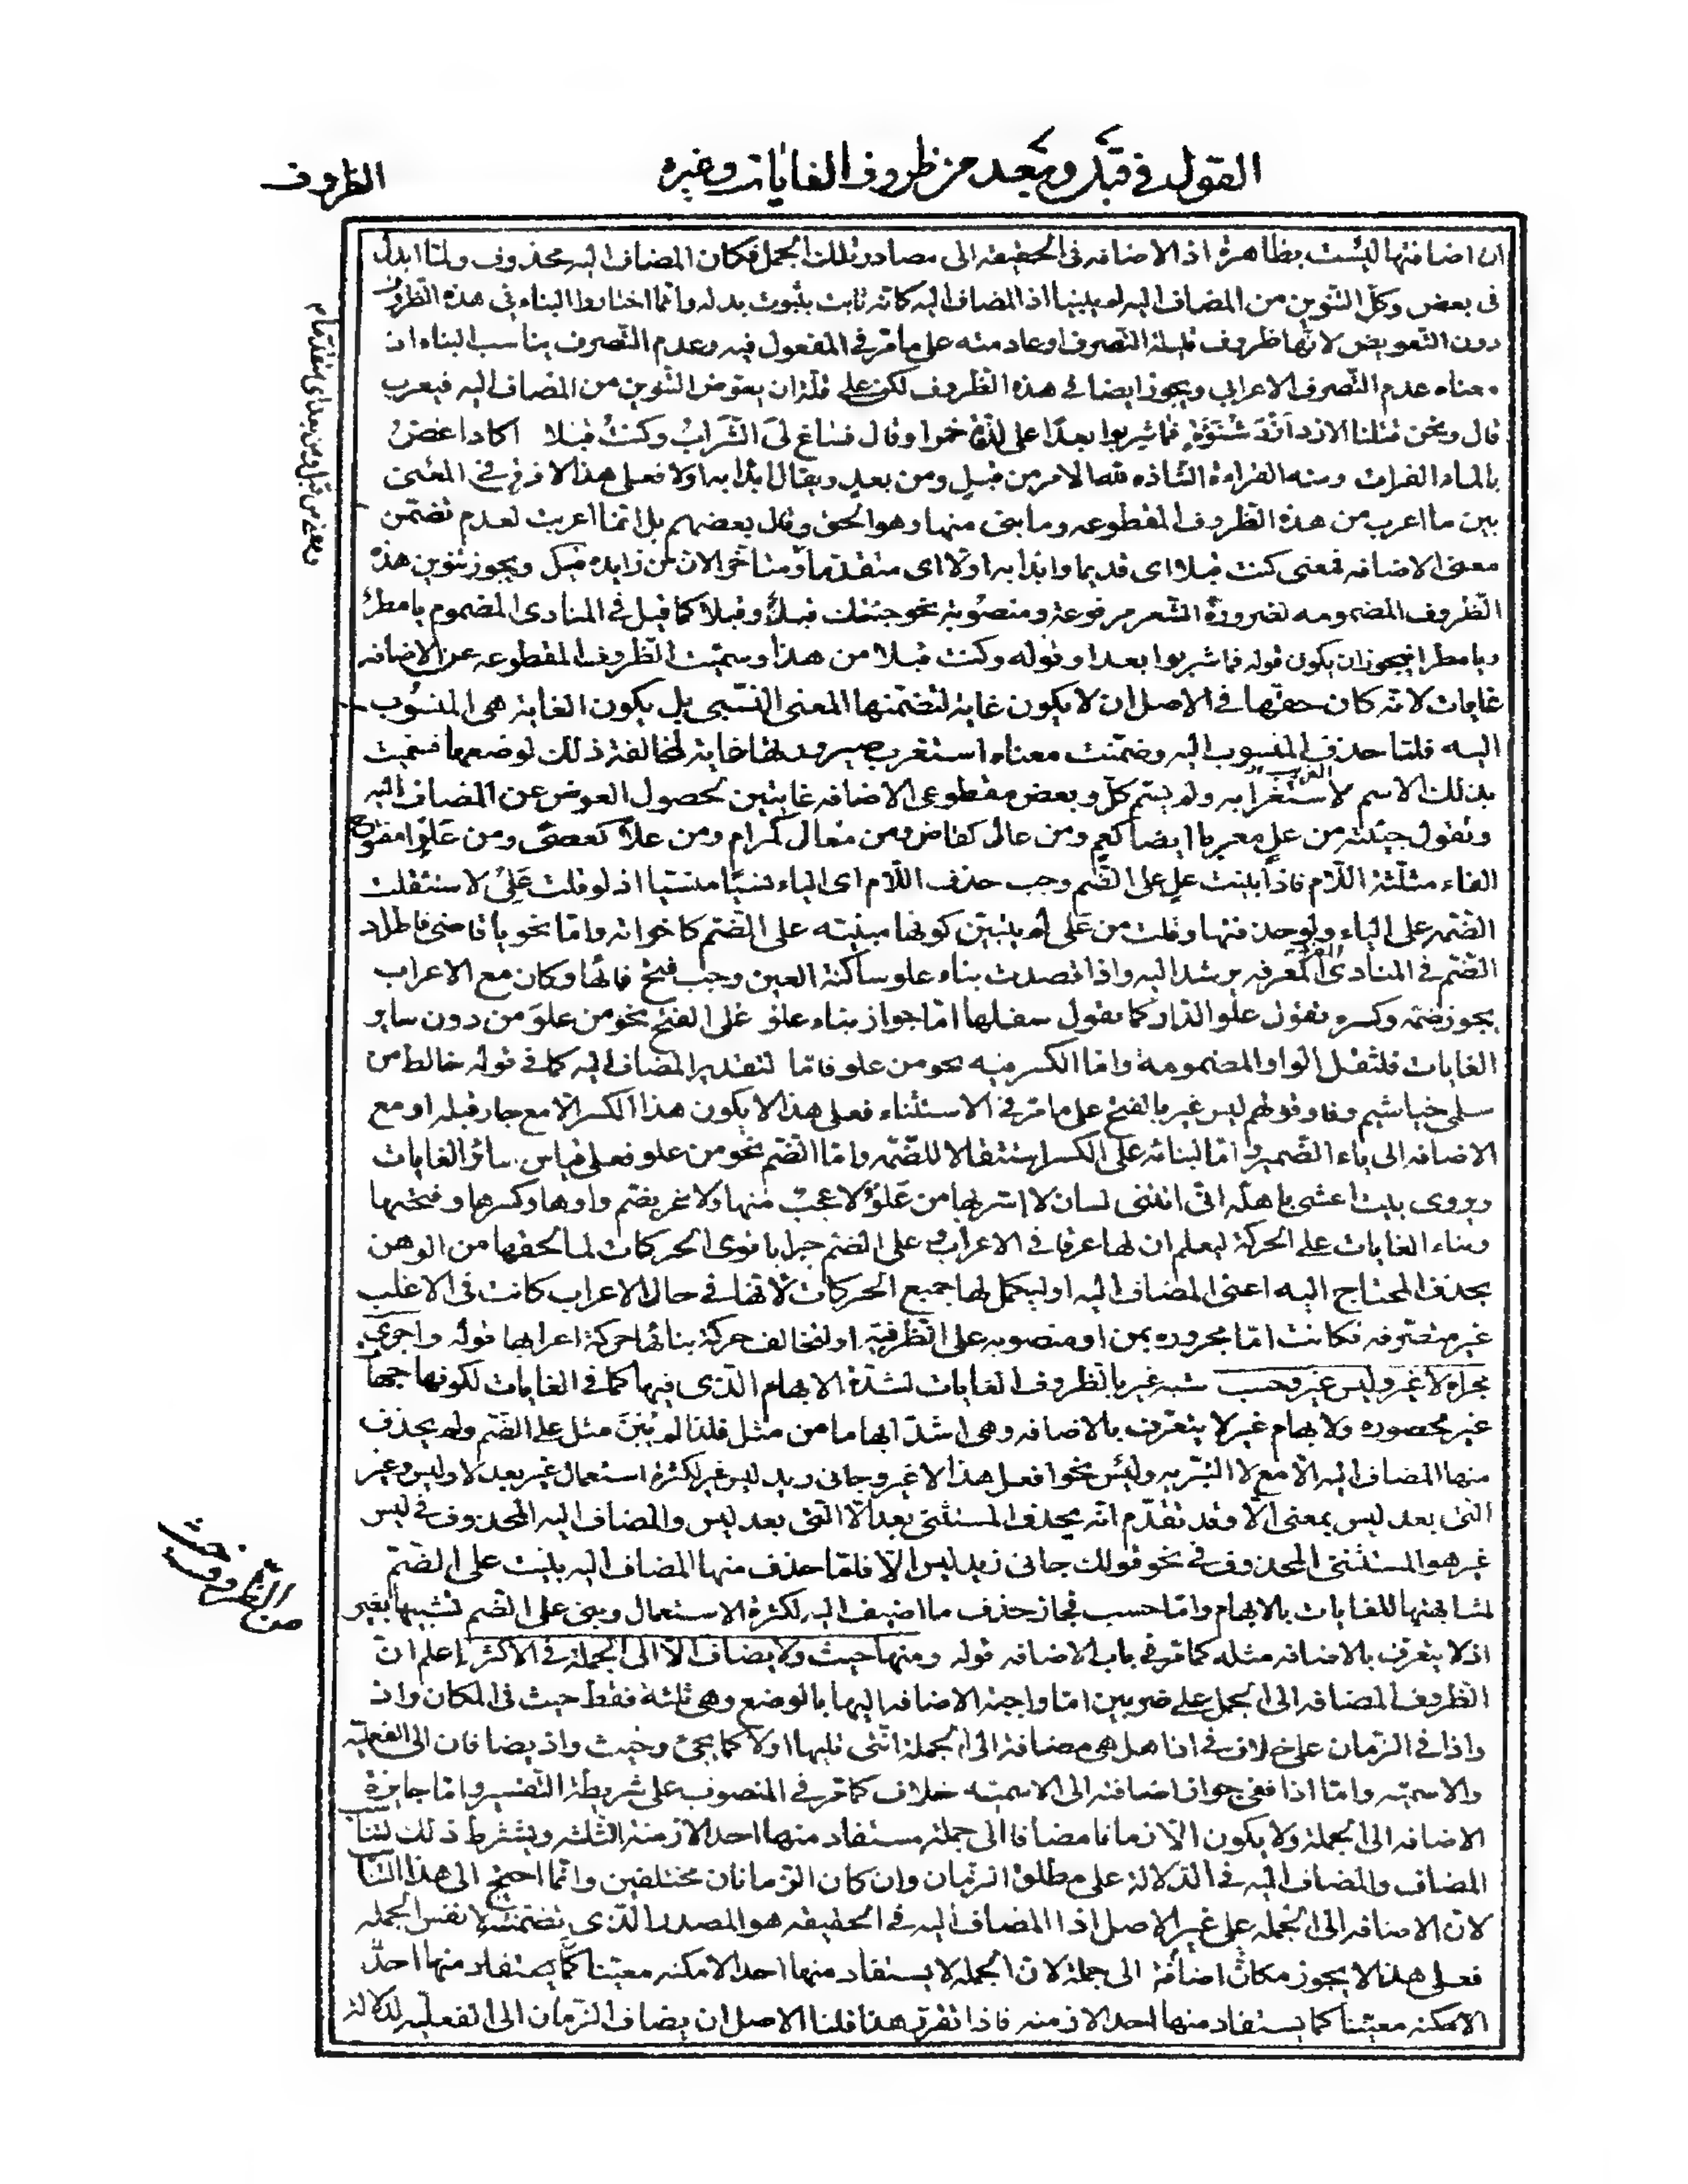 القول في قبل وبعد من ظروف الغايات وغيره
الظروف
ان اضافتها ليست بظاهرة اذ الاضافه فى الحقيقه الى مصادر تلك الجمل فكان المضاف اليه محذوف ولما ابدل
فى بعض وكل التنوين من المضاف اليه لم يبنيا اذ المضاف اليه كانه ثابت بثبوت بدله وانما اختاروا البناء فى هذه الظروف
دون التعويض لانها ظروف قليلة التصرف او عادمته على ما مر فى المفعول فيه وعدم التصرف يناسب البناء اذ
معناه عدم التصرف الاعرابى ويجوز ايضا فى هذه الظروف لكن على قلة ان يعوض التنوين من المضاف اليه فيعرب
قال ونحن قتلنا الازد ازد شنوءة فما شربوا بعدا على لذة خمرا وقال فساغ لى الشراب وكنت قبلا اكاد اغص
بالماء الفرات ومنه القراءة الشاذه لله الامر من قبل ومن بعد ويقال ابدا به اولا فعلى هذا لا فرق فى المعنى
بين ما اعرب من هذه الظروف المقطوعه وما بنى منها وهو الحق وقال بعضهم بل انما اعربت لعدم تضمن
معنى الاضافه فمعنى كنت قبلا اى قديما وابدا به اولا اى متقدما ومتاخرا لان من زايده قبل ويجوز تنوين هذه
الظروف المضمومه لضرورة الشعر مرفوعة ومنصوبة نحو جئتك قبل وقبلا كما قيل فى المنادى المضموم يا مطر
ويا مطرا فيجوز ان يكون قوله فما شربوا بعدا وقوله وكنت قبلا من هذا وسميت الظروف المقطوعه عن الاضافه
غايات لانه كان حقها فى الاصل ان لا يكون غاية لتضمنها المعنى النسبى بل يكون الغاية هى المنسوب
اليه فلما حذف المنسوب اليه وضمنت معناه استغرب صيرورتها غاية لمخالفة ذلك لوضعها فسميت
بذلك الاسم لاستغرابه ولم يسم كل وبعض مقطوعى الاضافه غايتين لحصول العوض عن المضاف اليه
وتقول جئته من عل معربا ايضا كعم ومن عال كقاض ومن معال كمرام ومن علا كعصى ومن علو مفتوح
الفاء مثلثة اللام فاذا بنيت عل على الضم وجب حذف اللام اى الياء نسيا منسيا اذ لو قلت على لاستثقلت
الضمه على الياء ولو حذفتها وقلت من على لم يتبين كونها مبنيه على الضم كاخواته واما نحو يا قاضى فاطراد
الضم فى المنادى المعرفه يرشد اليه واذا قصدت بناء علو ساكنة العين وجب فتح فائها وكان مع الاعراب
يجوز ضمه وكسره تقول علو الدار كما تقول سفلها اما جواز بناء علو على الفتح نحو من علو من دون ساير
الغايات فلثقل الواو المضمومة واما الكسر فيه نحو من علو فاما لتقدير المضاف اليه كما فى قوله خالط من
سلمى خياشيم وفا وقولهم ليس غير بالفتح على ما مر فى الاستثناء فعلى هذا لا يكون هذا الكسر الا مع جار قبله او مع
الاضافه الى ياء الضمير واما لبنائه على الكسر استثقالا للضمه واما الضم نحو من علو فعلى قياس سائر الغايات
ويروى بيت اعشى باهله انى اتتنى لسان لا اسر بها من علو لا عجب منها ولا سخر بضم واوها وكسرها وفتحها
وبناء الغايات على الحركة ليعلم ان لها عرقا فى الاعراب وعلى الضم جبرا باقوى الحركات لما لحقها من الوهن
بحذف المحتاج اليه اعنى المضاف اليه او ليكمل لها جميع الحركات لانها فى حال الاعراب كانت فى الاغلب
غير متصرفه فكانت اما مجروره بمن او منصوبه على الظرفيه او لتخالف حركة بنائها حركة اعرابها قوله واجرى
مجراه لا غير وليس غير وحسب شبه غير بالظروف الغايات لشدة الابهام الذى فيها كما فى الغايات لكونها جهات
غير محصوره ولابهام غير لا يتعرف بالاضافه وهى اشد ابهاما من مثل فلذا لم يبن مثل على الضم ولم يحذف
منها المضاف اليه الا مع لا التبريه وليس نحو افعل هذا لا غير وجاءنى زيد ليس غير لكثرة استعمال غير بعد لا وليس وغير
التى بعد ليس بمعنى الا وقد تقدم انه يحذف المستثنى بعد الا التى بعد ليس والمضاف اليه المحذوف فى ليس
غير هو المستثنى المحذوف فى نحو قولك جانى زيد ليس الا فلما حذف منها المضاف اليه بنيت على الضم
لمشابهتها للغايات بالابهام واما حسب فجاز حذف ما اضيف اليه لكثرة الاستعمال وبنى على الضم تشبيها بغير
اذ لا يتعرف بالاضافه مثله كما مر فى باب الاضافه قوله ومنها حيث ولا يضاف الا الى الجملة فى الاكثر اعلم ان
الظروف المضافه الى الجمل على ضربين اما واجبة الاضافه اليها بالوضع وهى ثلثة فقط حيث فى المكان واذ
واذا فى الزمان على خلاف فى اذا هل هى مضافة الى الجملة التى تليها اولا كما يجئ وحيث واذ يضافان الى الفعليه
والاسميه واما اذا ففى جواز اضافته الى الاسميه خلاف كما مر فى المنصوب على شريطة التفسير واما جايزة
الاضافه الى الجملة ولا يكون الا زمانا مضافا الى جملة مستفاد منها احد الازمنة الثلثه ويشترط ذلك لتناسب
المضاف والمضاف اليه فى الدلالة على مطلق الزمان وان كان الزمانان مختلفين وانما احتيج الى هذا التناسب
لان الاضافه الى الجمله على غير الاصل اذ المضاف اليه فى الحقيقه هو المصدر الذى تضمنته لا نفس الجمله
فعلى هذا لا يجوز مكان اضافة الى جملة لان الجمله لا يستفاد منها احد الامكنه معينا كما يستفاد منها احد
الامكنه معينا كما يستفاد منها احد الازمنه فاذا تقرر هذا قلنا الاصل ان يضاف الزمان الى الفعليه لدلالة
ومعنى من قبل ومن بعد اى متقدما
من الظروف حيث